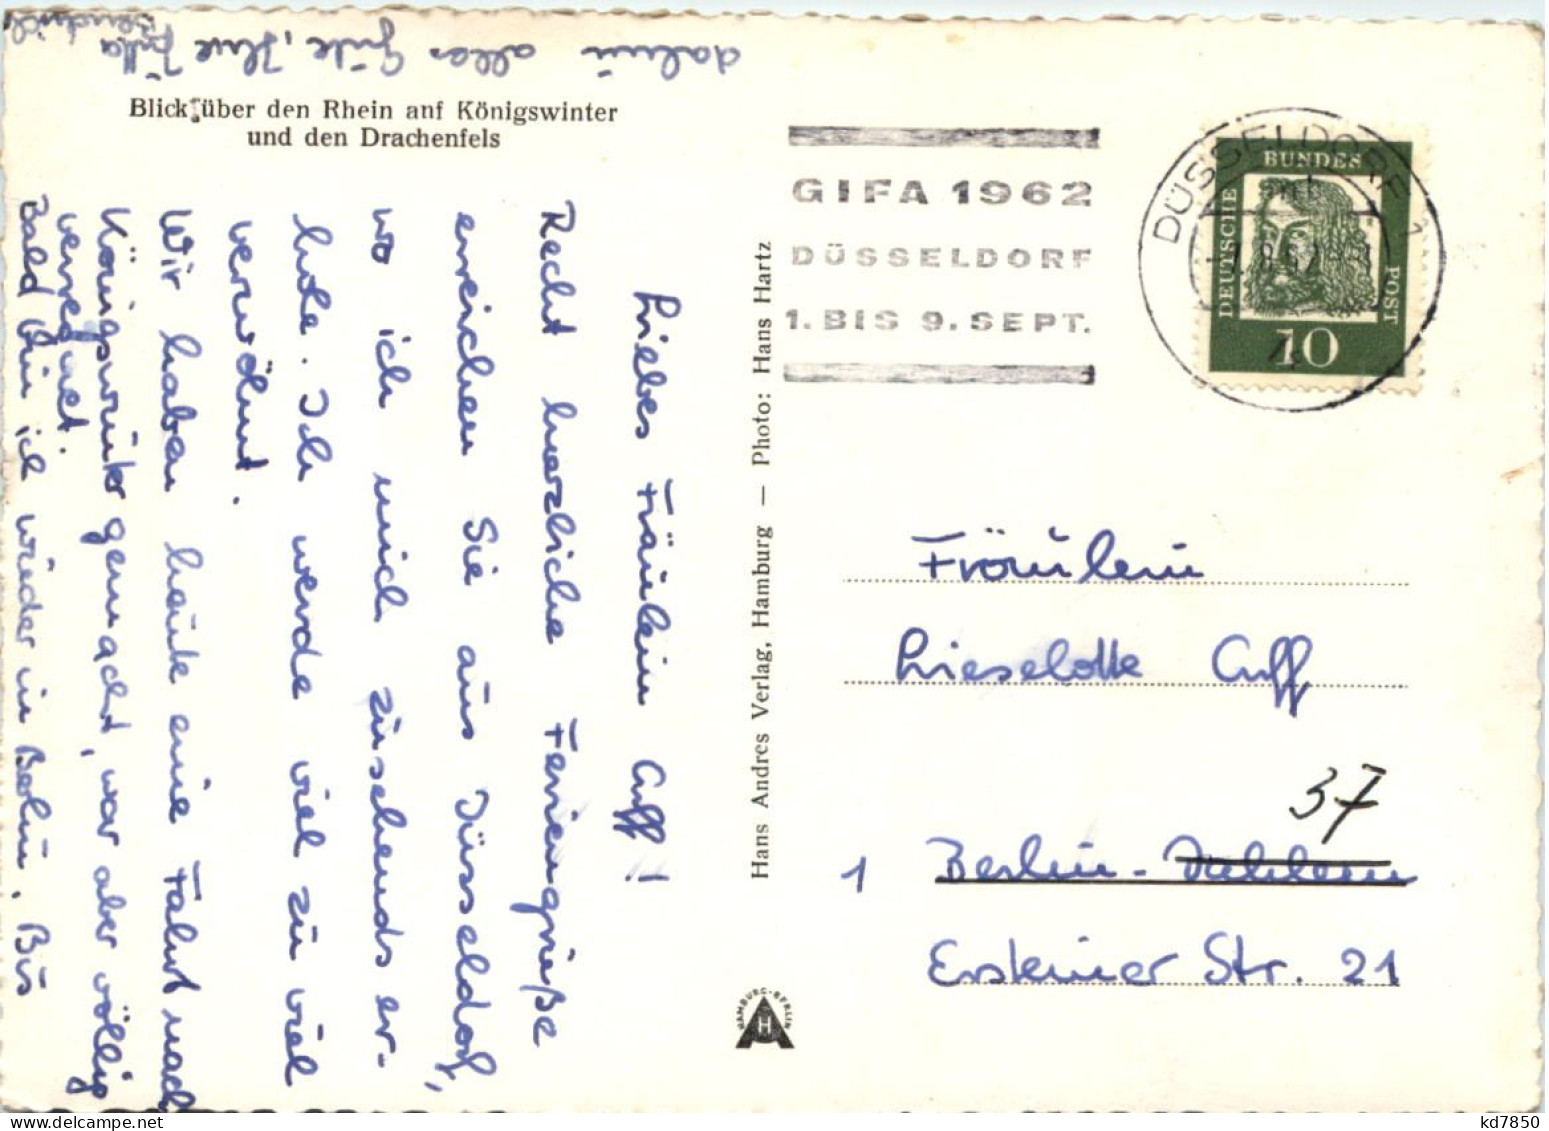 Blick über den Rhein auf Königswinter
und den Drachenfels
Liebes Fräulein Cuff!
Recht herzliche Feriengrüße
erreichen Sie aus Düsseldorf,
wo ich mich zusehends er-
hole. Ich werde viel zu viel
verwöhnt.
Wir haben heute eine Fahrt nach
Königswinter gemacht, war aber völlig
verregnet.
Bald bin ich wieder in Berlin. Bis
dahin alles Gute, Ihre Jutta
Hans Andres Verlag, Hamburg — Photo: Hans Hartz
HAMBURG-BERLIN
H
GIFA 1962
DÜSSELDORF
1. BIS 9. SEPT.
DÜSSELDORF 1
DEUTSCHE
BUNDES
POST
10
Fräulein
Lieselotte Cuff
37
1 Berlin-Dahlem
Ersteiner Str. 21
kd7850